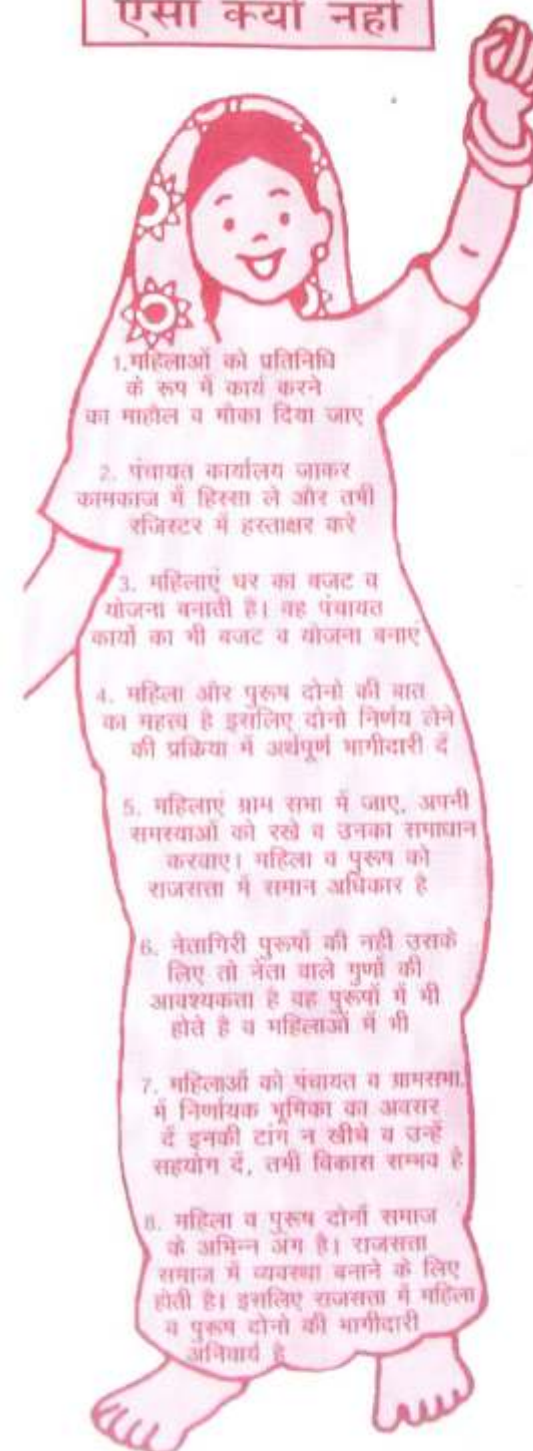 ऐसा क्यों नहीं
1.महिलाओं को प्रतिनिधि
के रूप में कार्य करने
का माहौल व मौका दिया जाए
2. पंचायत कार्यालय जाकर
कामकाज में हिस्सा ले और तभी
रजिस्टर में हस्ताक्षर करे
3. महिलाएं घर का बजट व
योजना बनाती है। वह पंचायत
कार्यो का भी बजट व योजना बनाएं
4. महिला और पुरूष दोनो की बात
का महत्व है इसलिए दोनो निर्णय लेने
की प्रक्रिया में अर्थपूर्ण भागीदारी दें
5. महिलाएं ग्राम सभा में जाए, अपनी
समस्याओं को रखे व उनका समाधान
करवाए। महिला व पुरूष को
राजसत्ता में समान अधिकार है
6. नेतागिरी पुरूषों की नही उसके
लिए तो नेता वाले गुणों की
आवश्यकता है वह पुरूषों में भी
होते है व महिलाओं में भी
7. महिलाओं को पंचायत व ग्रामसभा
में निर्णायक भूमिका का अवसर
दें इनकी टांग न खीचे व उन्हें
सहयोग दें, तभी विकास सम्भव है
8. महिला व पुरूष दोनों समाज
के अभिन्न अंग है। राजसत्ता
समाज में व्यवस्था बनाने के लिए
होती है। इसलिए राजसत्ता में महिला
व पुरूष दोनो की भागीदारी
अनिवार्य है